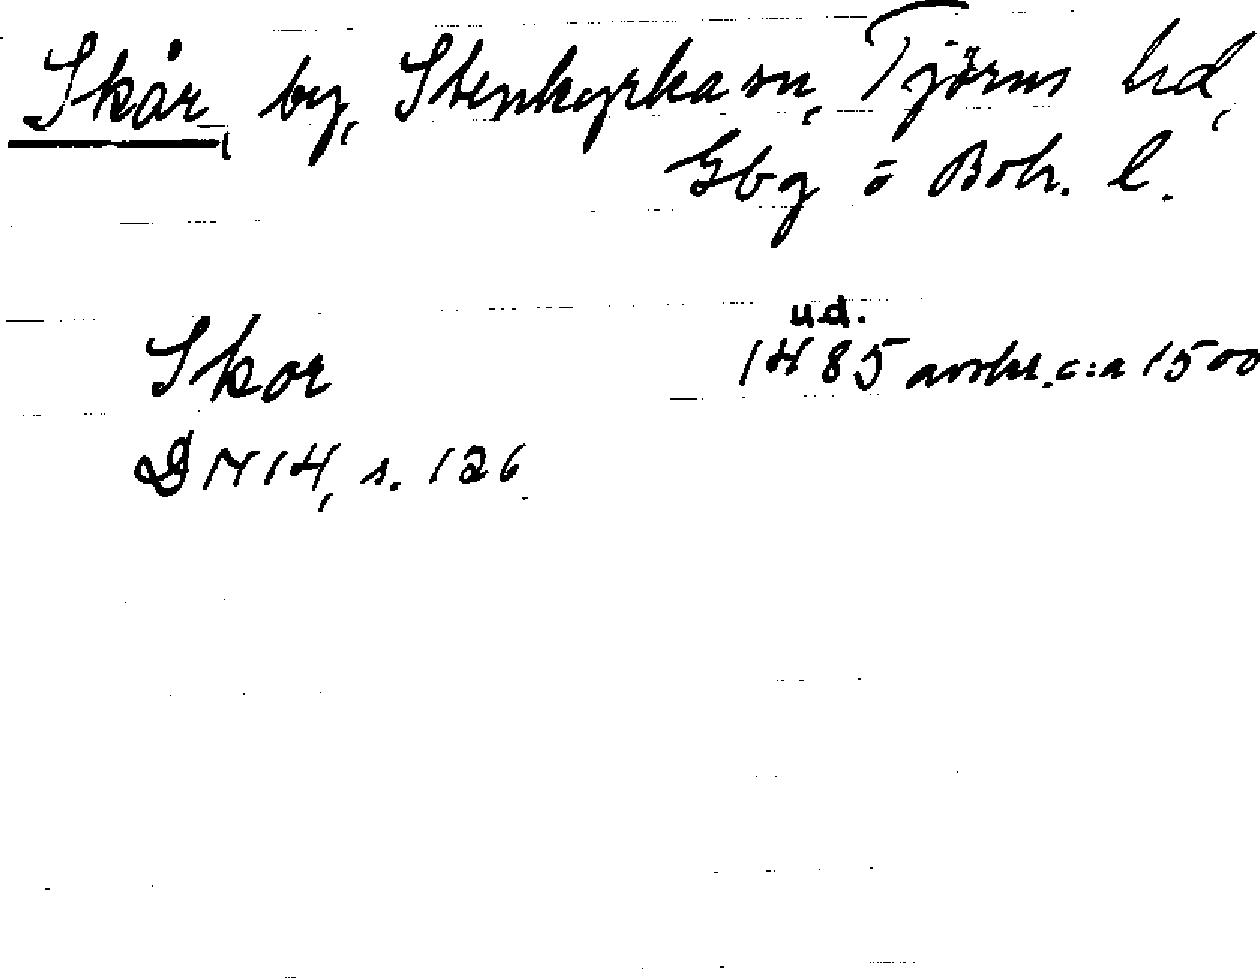 Skår, by, Stenkyrka sn, Tjörns hd,
Gbg o Boh. l.
u.d.
Skor 1485 avskr. c:a 1500
DN 14, s. 126